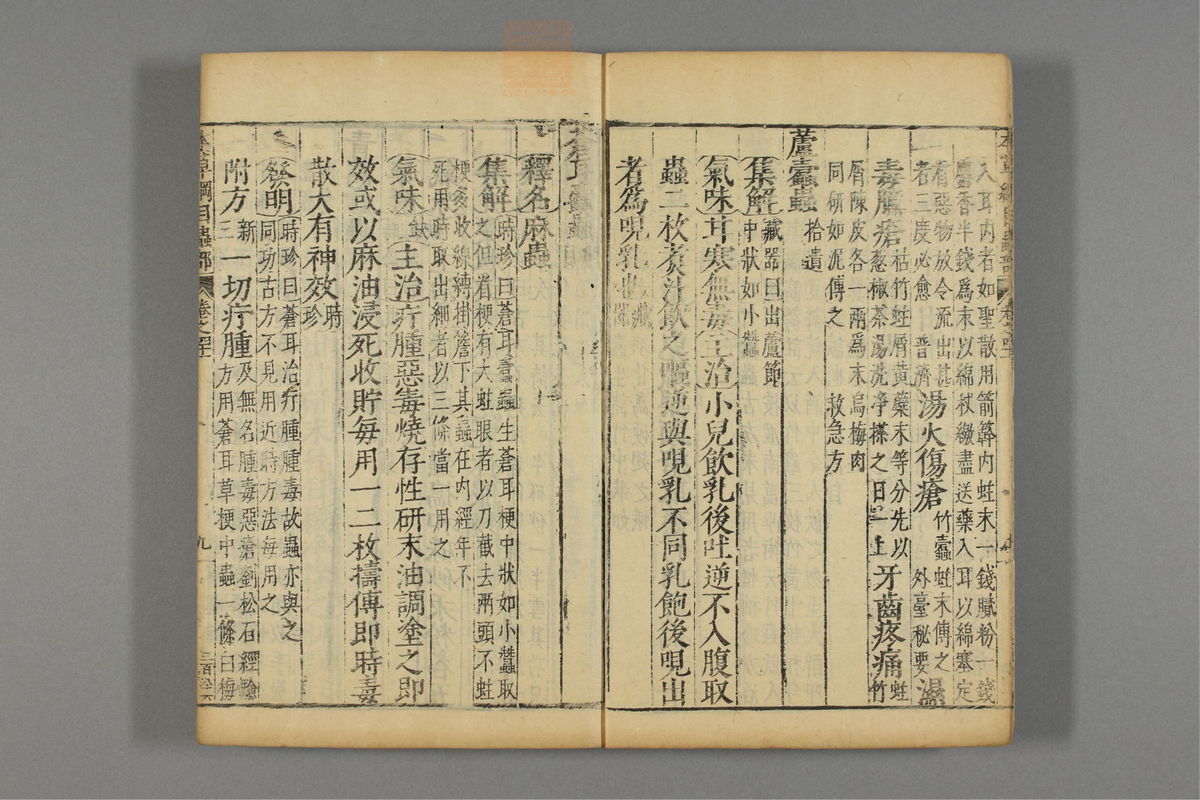 本草綱目蟲部 卷之四十
入耳內者如聖散用箭簳內蛀末一錢膩粉一錢
麝香半錢爲末以綿杖繳盡送藥入耳以綿塞定
有惡物放令流出甚者三度必愈 普濟 湯火傷瘡 竹蠹蛀末傅之 外臺秘要 濕
毒臁瘡 枯竹蛀屑黄蘗末等分先以葱椒茶湯洗净搽之日一上 牙齒疼痛 蛀竹
屑陳皮各一兩爲末烏梅肉同研如泥傅之 救急方
蘆蠹蟲 拾遺
集解 藏器曰出蘆節中狀如小蠶
氣味 甘寒無毒 主治 小兒飲乳後吐逆不入腹取
蟲二枚煑汁飲之嘔逆與哯乳不同乳飽後哯出
者爲哯乳也 藏器
釋名 麻蟲
集解 時珍曰蒼耳蠹蟲生蒼耳梗中狀如小蠶取之但看梗有大蛀眼者以刀截去兩頭不蛀
梗多收線縛掛簷下其蟲在內經年不死用時取出細者以三條當一用之
氣味 缺 主治 疔腫惡毒燒存性研末油調塗之即
效或以麻油浸死收貯每用一二枚擣傅即時毒
散大有神效 時珍
發明 時珍曰蒼耳治疔腫腫毒故蟲亦與之同功古方不見用近時方法每用之
附方 新三 一切疔腫 及無名腫毒惡瘡劉松石經驗方用蒼耳草梗中蟲一條白梅
本草綱目蟲部 卷之四十 九